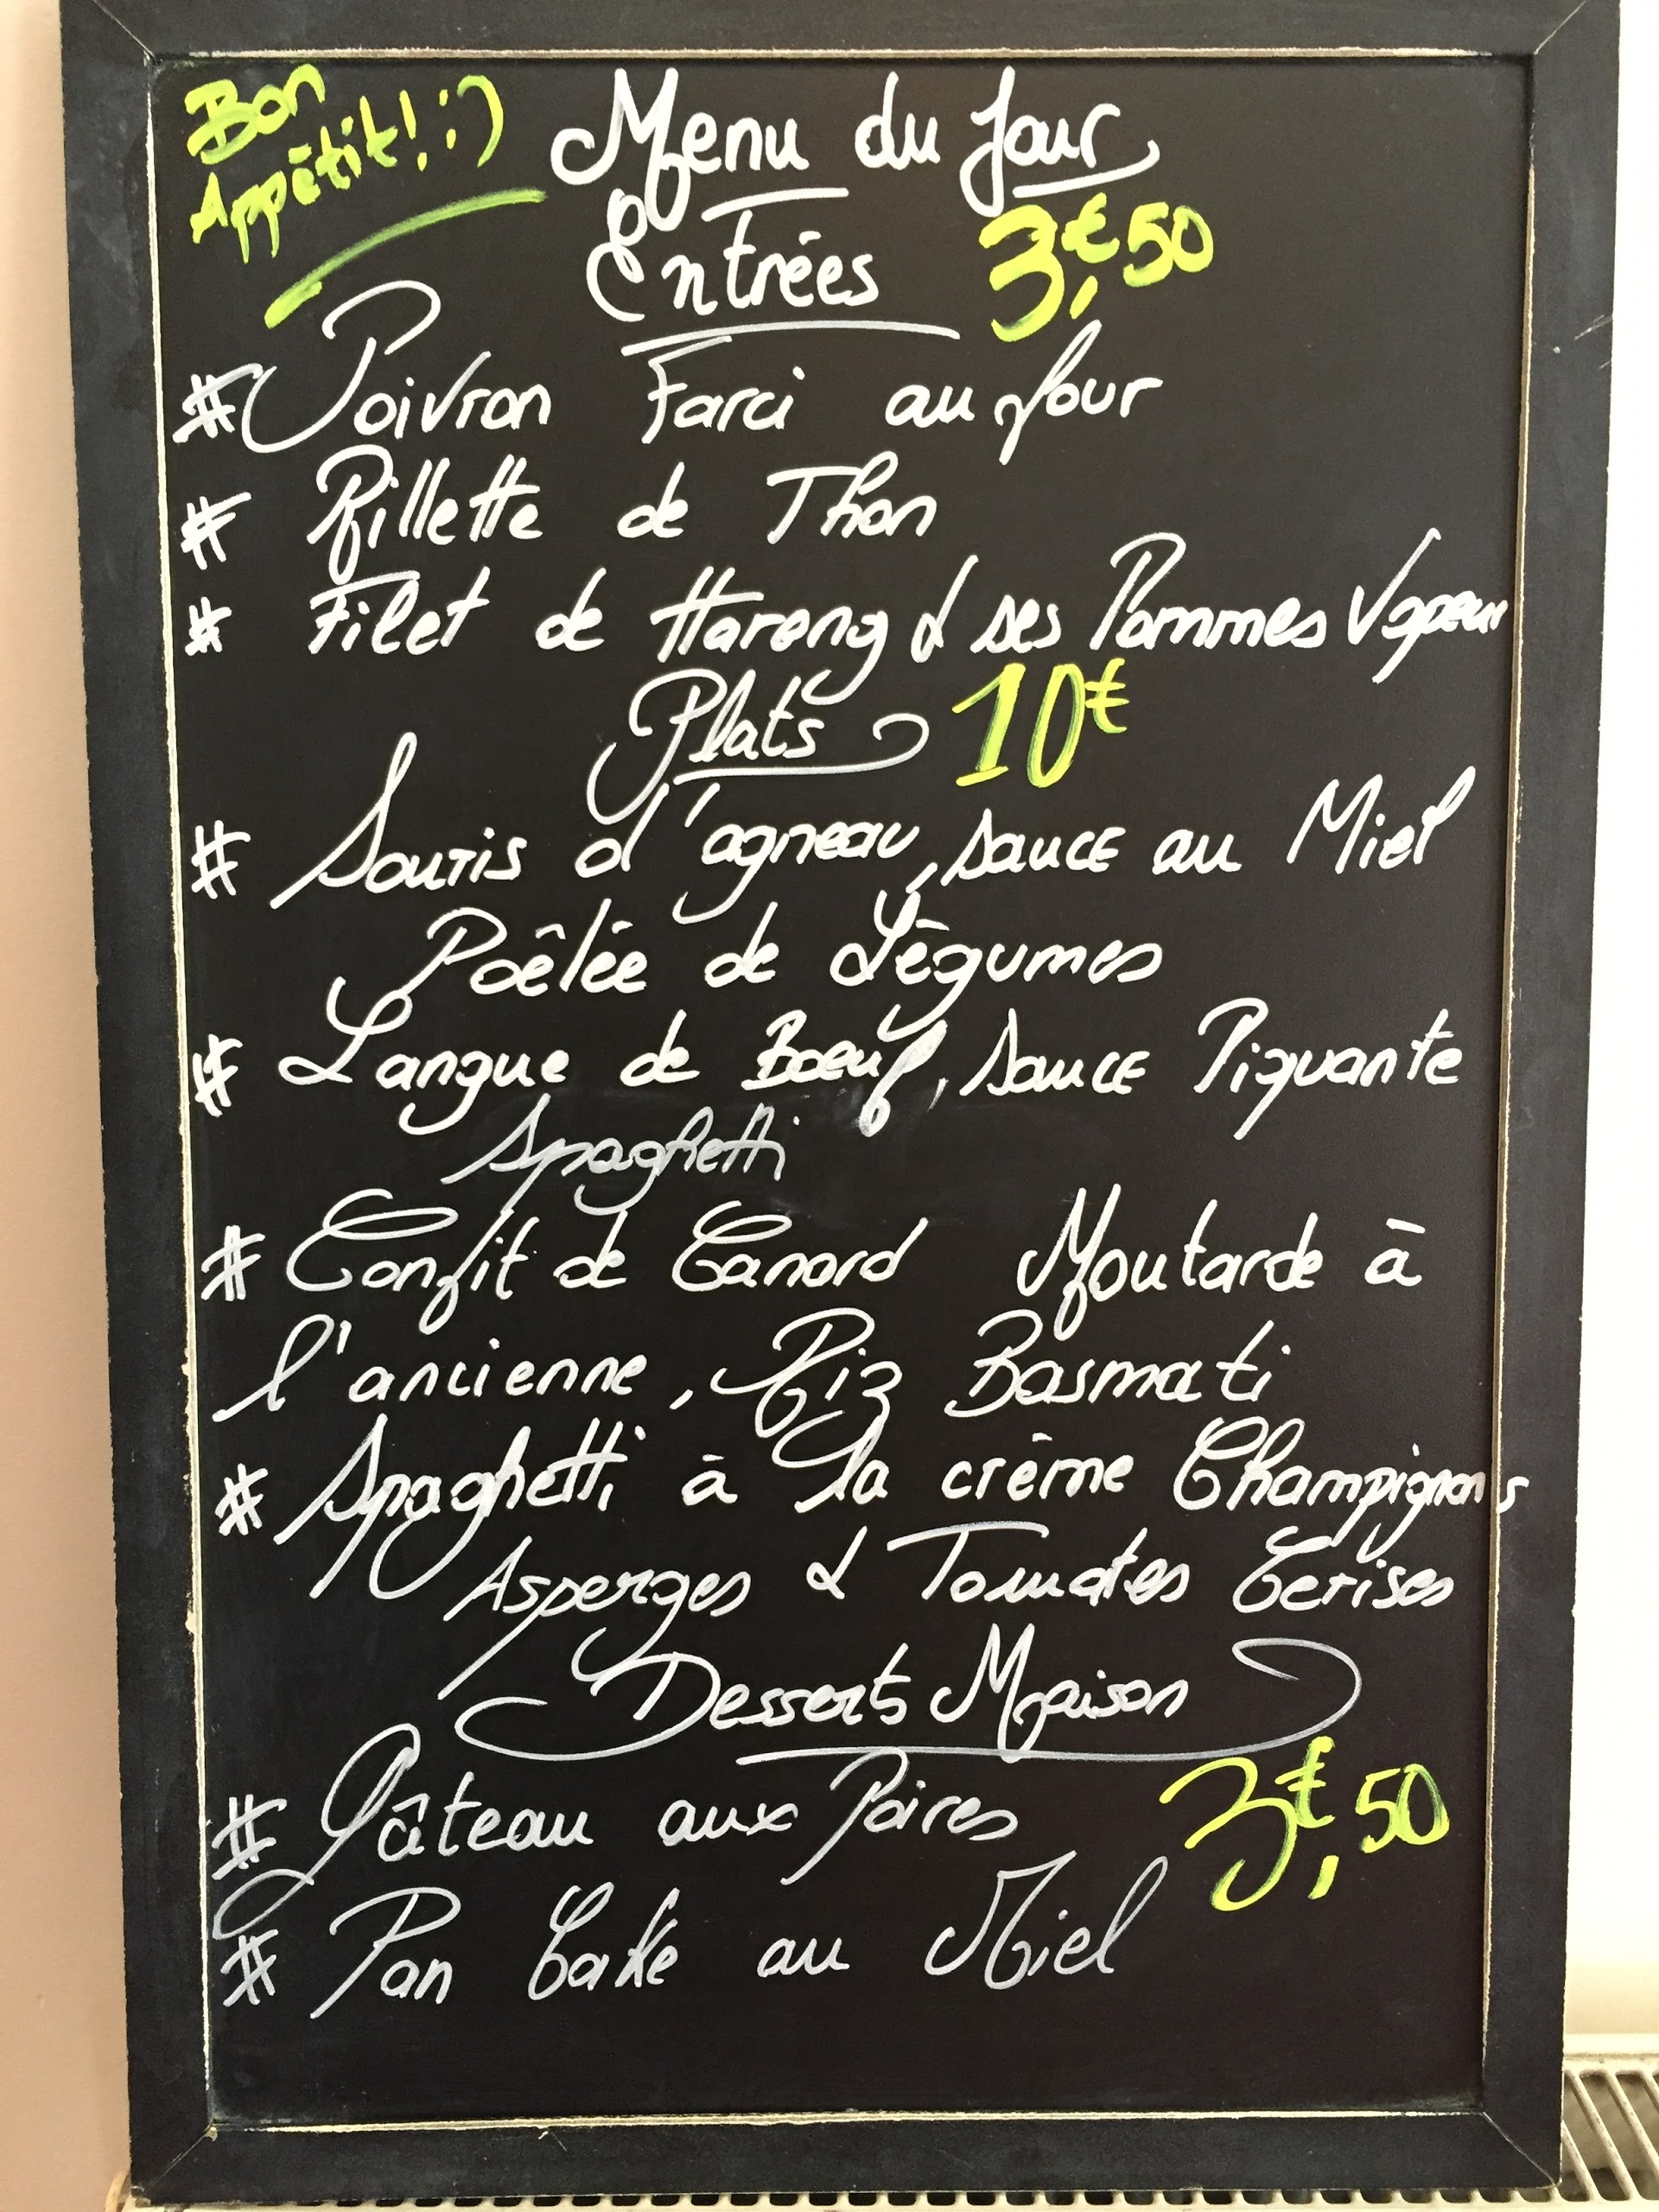 Bon
Appétit! :)
Menu du Jour
Entrées 3€,50
# Poivron Farci au four
# Rillette de Thon
# Filet de Hareng & ses Pommes Vapeur
Plats 10€
# Souris d'agneau, sauce au Miel
Poêlée de Légumes
# Langue de Boeuf, sauce Piquante
Spaghetti
# Confit de Canard Moutarde à
l'ancienne, Riz Basmati
# Spaghetti à la crème Champignons
Asperges & Tomates Cerises
Desserts Maison
# Gâteau aux Poires 3€,50
# Pan Cake au Miel